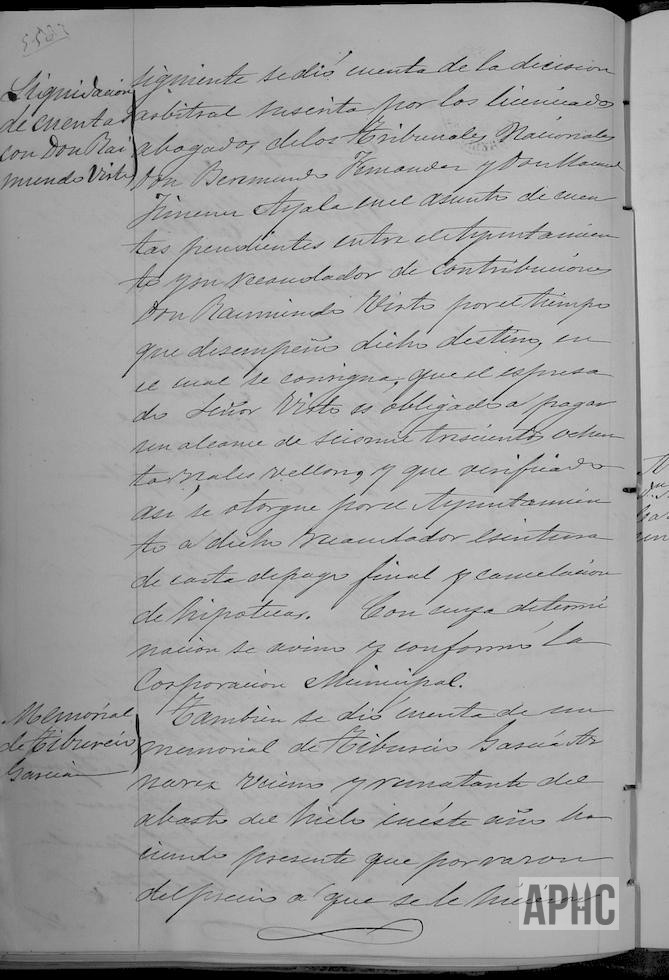 Liquidacion
de cuentas
con Don Rai
mundo Visto
siguiente se dió cuenta de la decision
arbitral suscrita por los licenciado
abogados de los Tribunales Nacionales
Don Beremundo Fernandez y Don Manuel
Jimenez Ayala en el asunto de cuen
tas pendientes entre el Ayuntamien
to y su recaudador de contribuciones
Don Raimundo Visto por el tiempo
que desempeño dicho destino, en
el cual se consigna, que el espresa
do Señor Visto es obligado a pagar
un alcance de seiscmil trescientos ochen
ta reales vellon, y que verificado
asi se otorgue por el Ayuntamien
to a dicho recaudador Escritura
de carta de pago final y cancelacion
de hipotecas. Con cuya determi
nacion se avino y conformó la
Corporacion Municipal.
Memorial
de Tiburcio
Garcia
Tambien se dió cuenta de un
memorial de Tiburcio Garcia
vecino y rematante del
abasto del hielo en éste año ha
ciendo presente que por razon
del precio a que se le hicieron
APHC